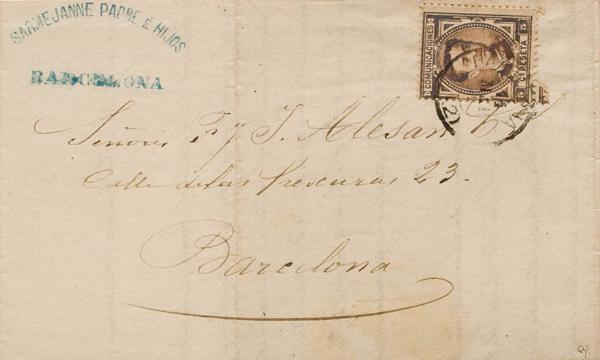 SARMEJANNE PADRE É HIJOS
BARCELONA
COMUNICACIONES
5 C. PESETA 5
Señores F y J. Alesan
Calle de las Frescuras 23.
Barcelona